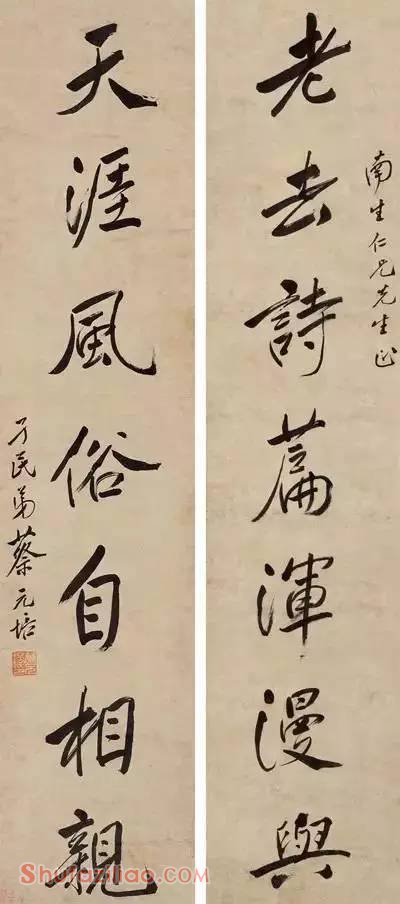 南生仁兄先生正
老去詩篇渾漫與
天涯風俗自相親
孑民弟蔡元培
Shufaziliao.com